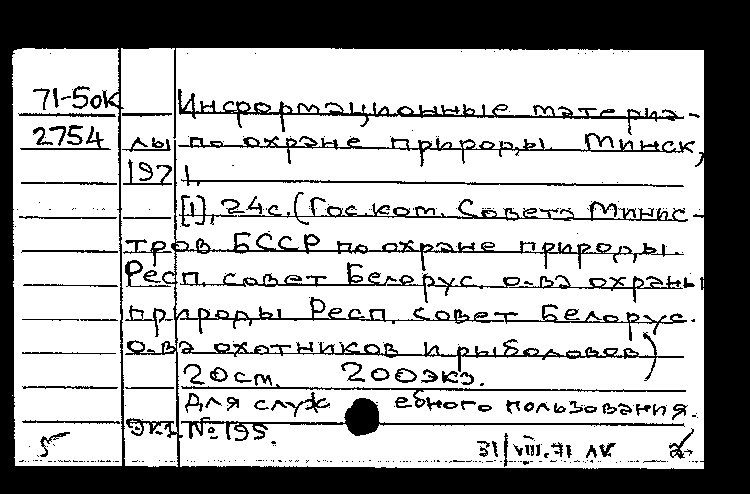 71-5ок Информационные материа-
2754 лы по охране природы. Минск,
1971.
[1], 24с. (Гос. ком. Совета Минис-
тров БССР по охране природы.
Респ. совет Белорус. о-ва охраны
природы Респ. совет Белорус.
о-ва охотников и рыболовов)
20см. 200экз.
Для служебного пользования.
Экз. № 195.
31/VIII.71